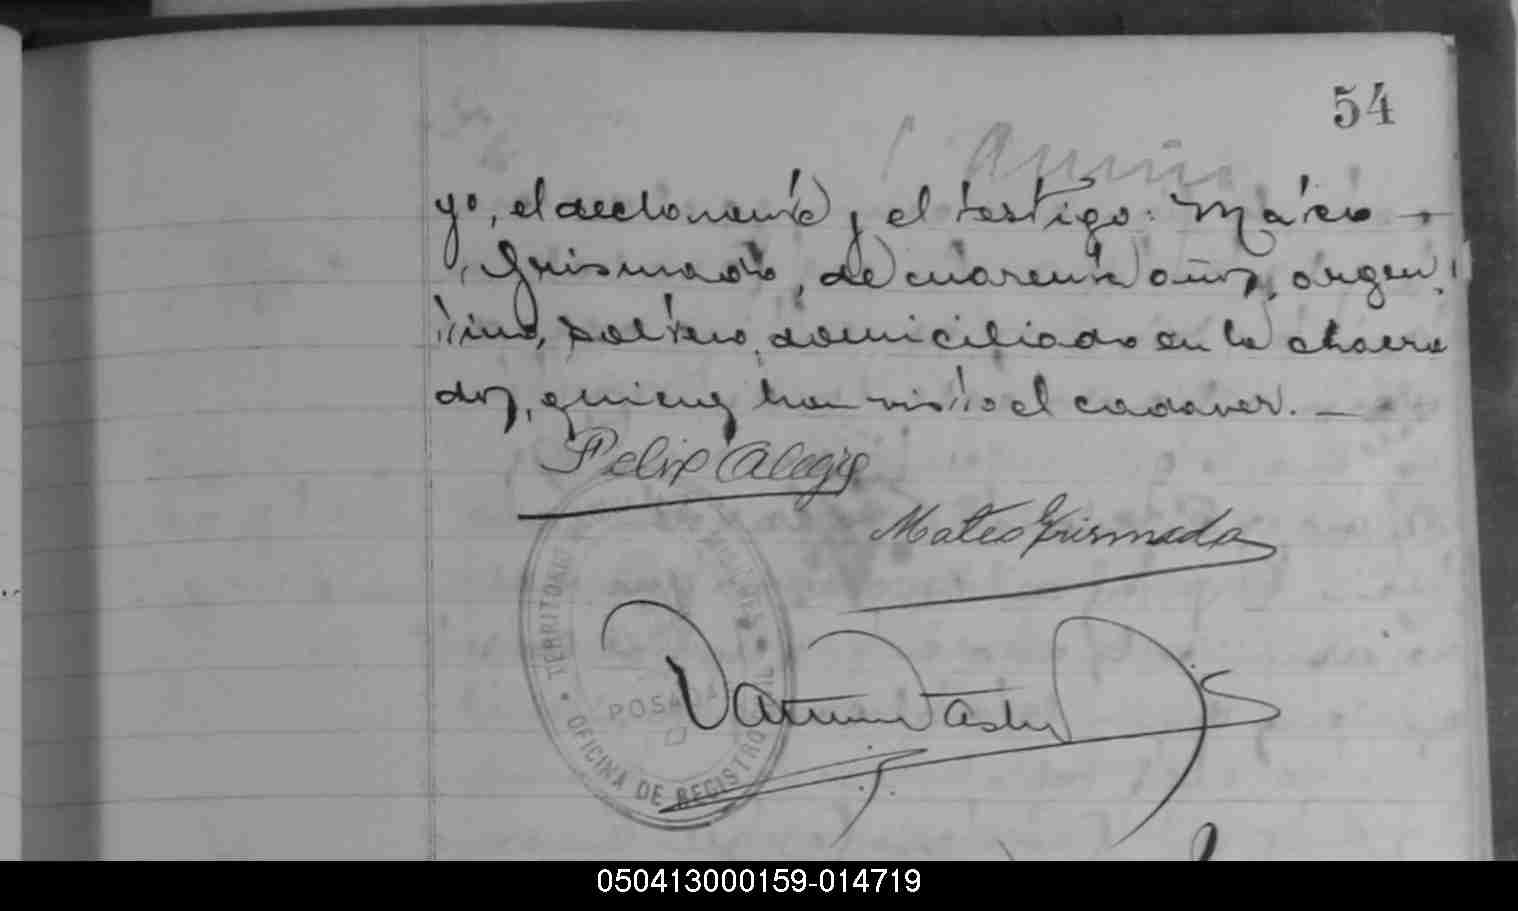 54
yo, el declarante y el testigo: Mateo
Grismado, de cuarenta años, argen
tino, soltero, domiciliado en la chacra
dos, quienes han visto el cadaver. —
Felip Alegre
Mateo Grismado
TERRITORIO MISIONES
POSADAS
OFICINA DE REGISTRO CIVIL
050413000159-014719